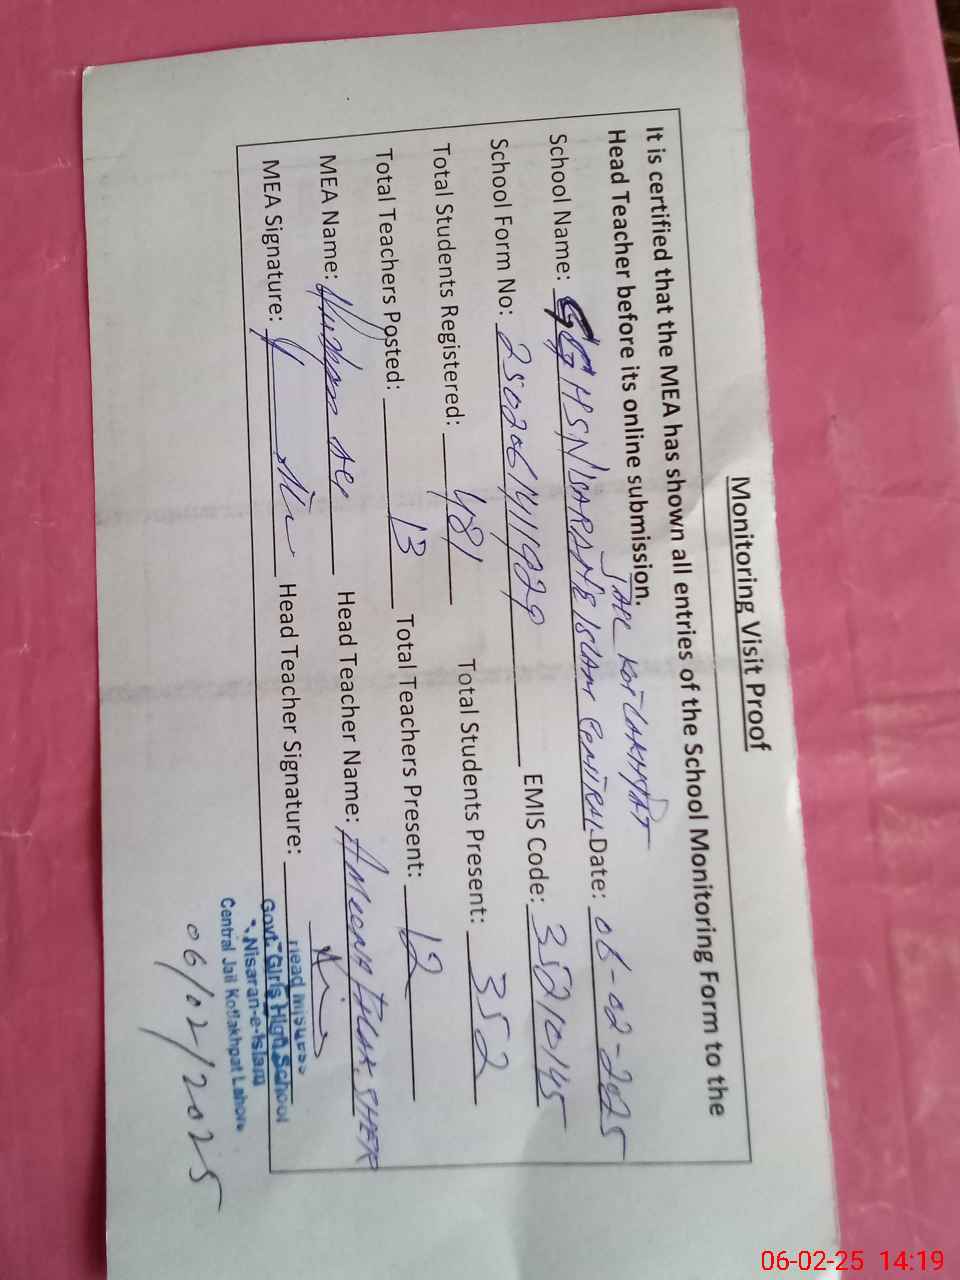 Monitoring Visit Proof
It is certified that the MEA has shown all entries of the School Monitoring Form to the
Head Teacher before its online submission.
JAIL KOT LAKHPAT
School Name: GGHS NISARANE ISLAM CENTRAL Date: 06-02-2025
School Form No: EMIS Code: 35210145
Total Students Registered: 481 Total Students Present: 352
Total Teachers Posted: 13 Total Teachers Present: 12
MEA Name: Head Teacher Name: AMEENA SHER
MEA Signature: Head Teacher Signature:
Head Mistress
Govt. Girls High School
Nisaran-e-Islam
Central Jail Kotlakhpat Lahore
06/02/2025
06-02-25 14:19